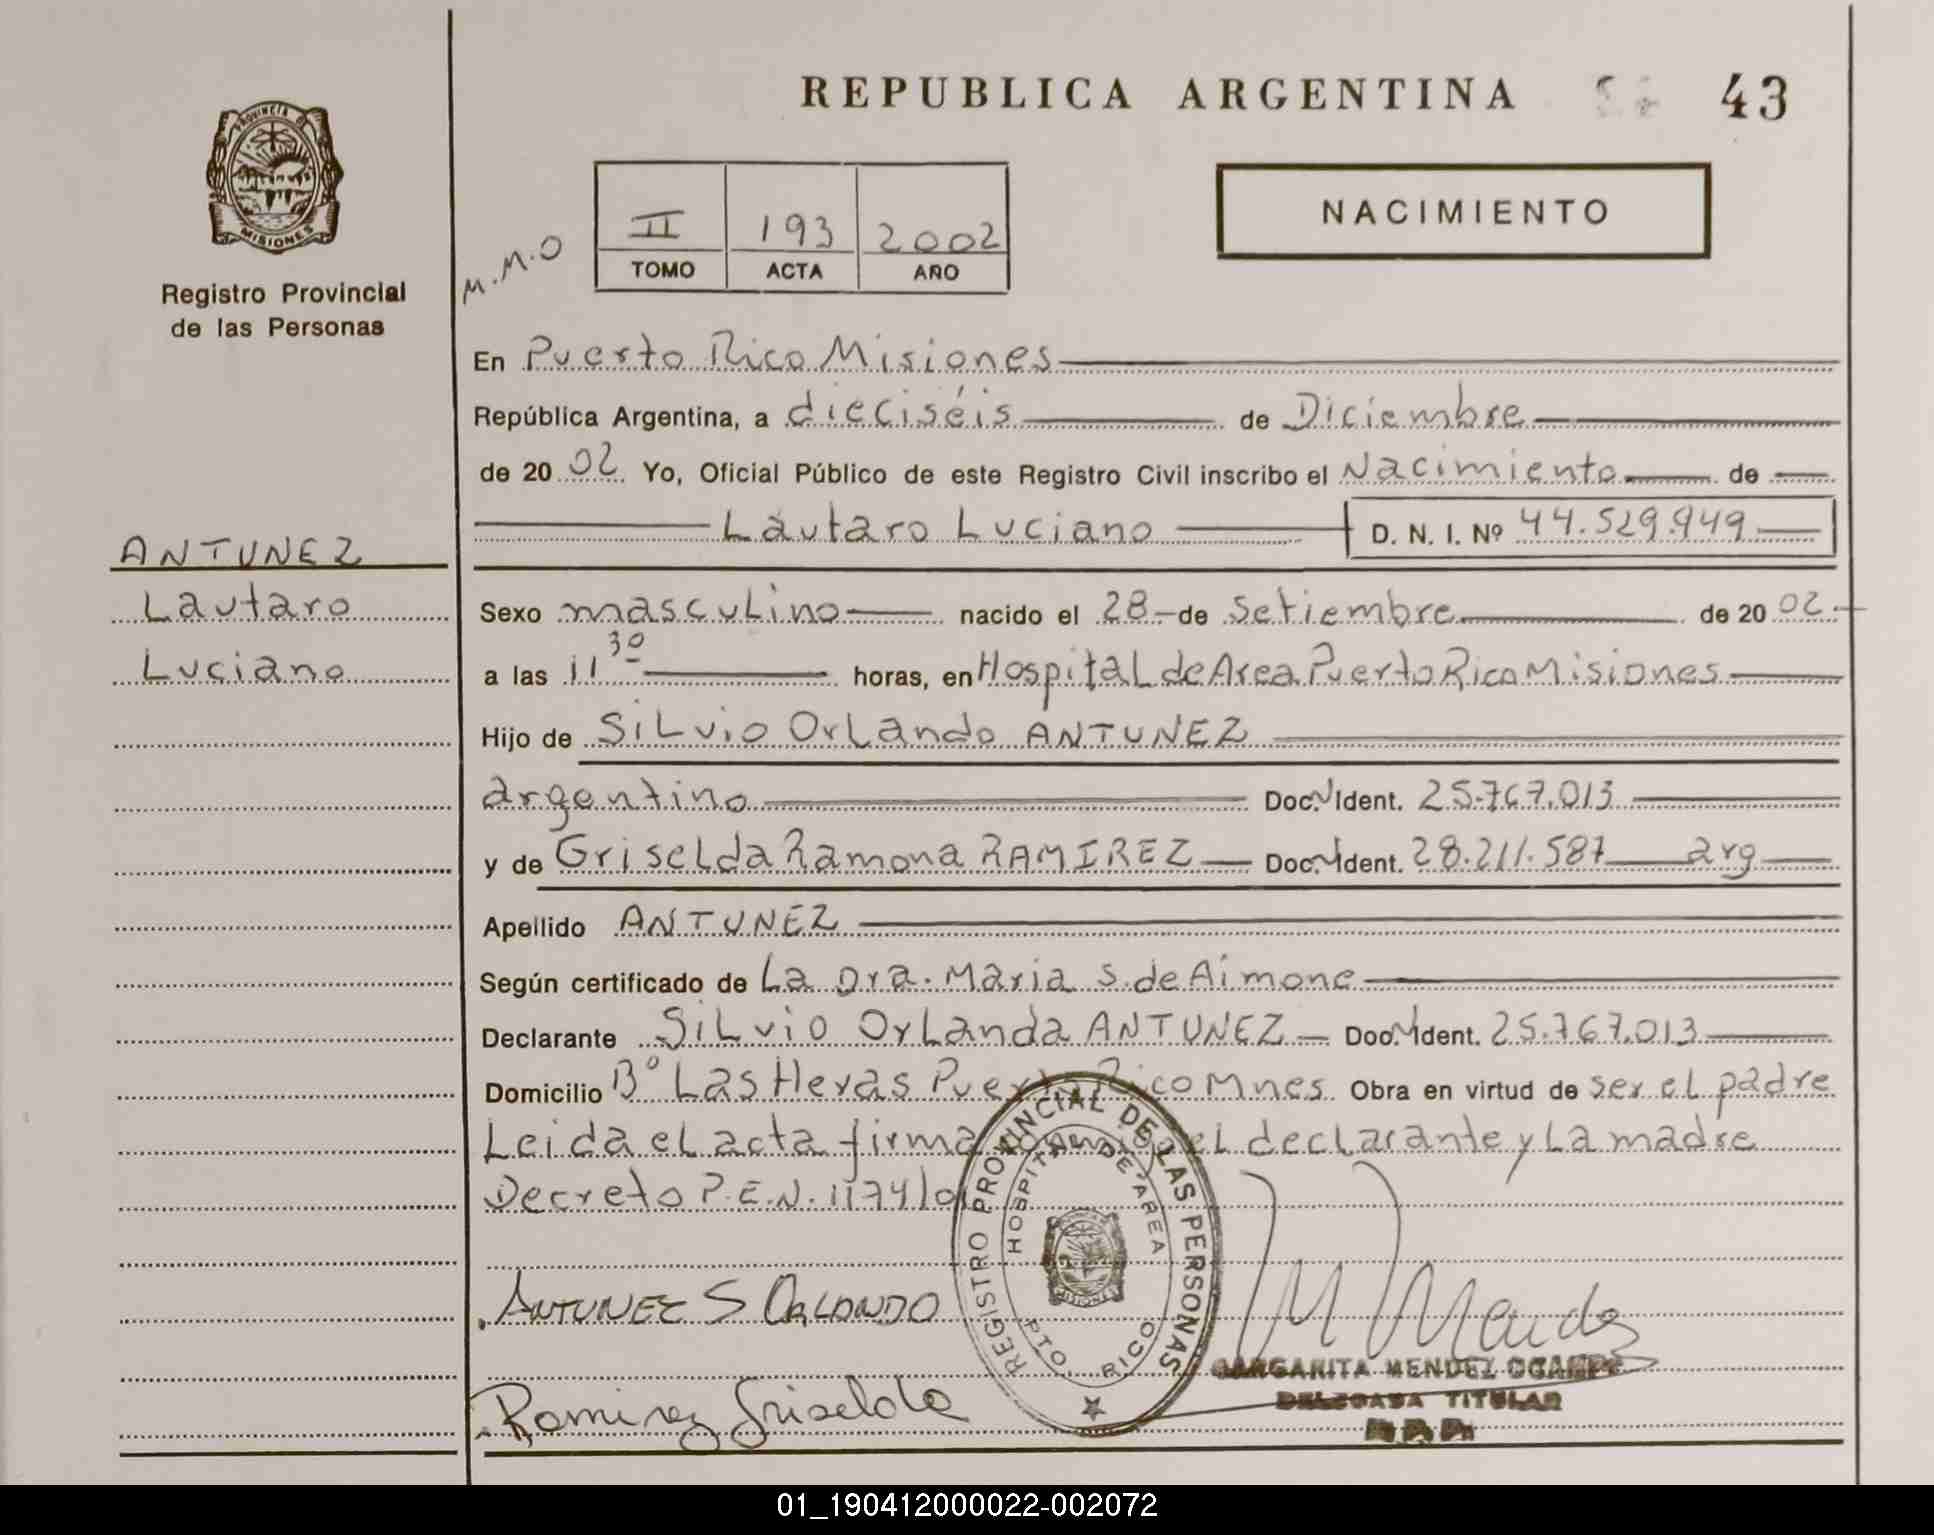 REPUBLICA ARGENTINA 43
PROVINCIA DE
MISIONES
Registro Provincial
de las Personas
M.M.O
II 193 2002
TOMO ACTA AÑO
NACIMIENTO
En Puerto Rico Misiones
República Argentina, a dieciséis de Diciembre
de 20 02 Yo, Oficial Público de este Registro Civil inscribo el Nacimiento de
Lautaro Luciano D. N. I. Nº 44.529.949
ANTUNEZ
Lautaro
Luciano
Sexo masculino nacido el 28 de Setiembre de 20 02
a las 11 30 horas, en Hospital de Area Puerto Rico Misiones
Hijo de Silvio Orlando ANTUNEZ
argentino Doc. N Ident. 25.767.013
y de Griselda Ramona RAMIREZ Doc. N Ident. 28.211.587 arg
Apellido ANTUNEZ
Según certificado de La Dra. Maria S. de Aimone
Declarante Silvio Orlanda ANTUNEZ Doc. N Ident. 25.767.013
Domicilio Bº Las Heras Puerto Rico Mnes Obra en virtud de ser el padre
Leida el acta firma el declarante y La madre
Decreto P.E.N. 1174/01
REGISTRO PROVINCIAL DE LAS PERSONAS
HOSPITAL DE AREA
PTO. RICO
MISIONES
ANTUNEZ S ORLANDO
M Mendez
MARGARITA MENDEZ OCAMPO
DELEGADA TITULAR
R.P.P.
Ramirez Griselda
01_190412000022-002072